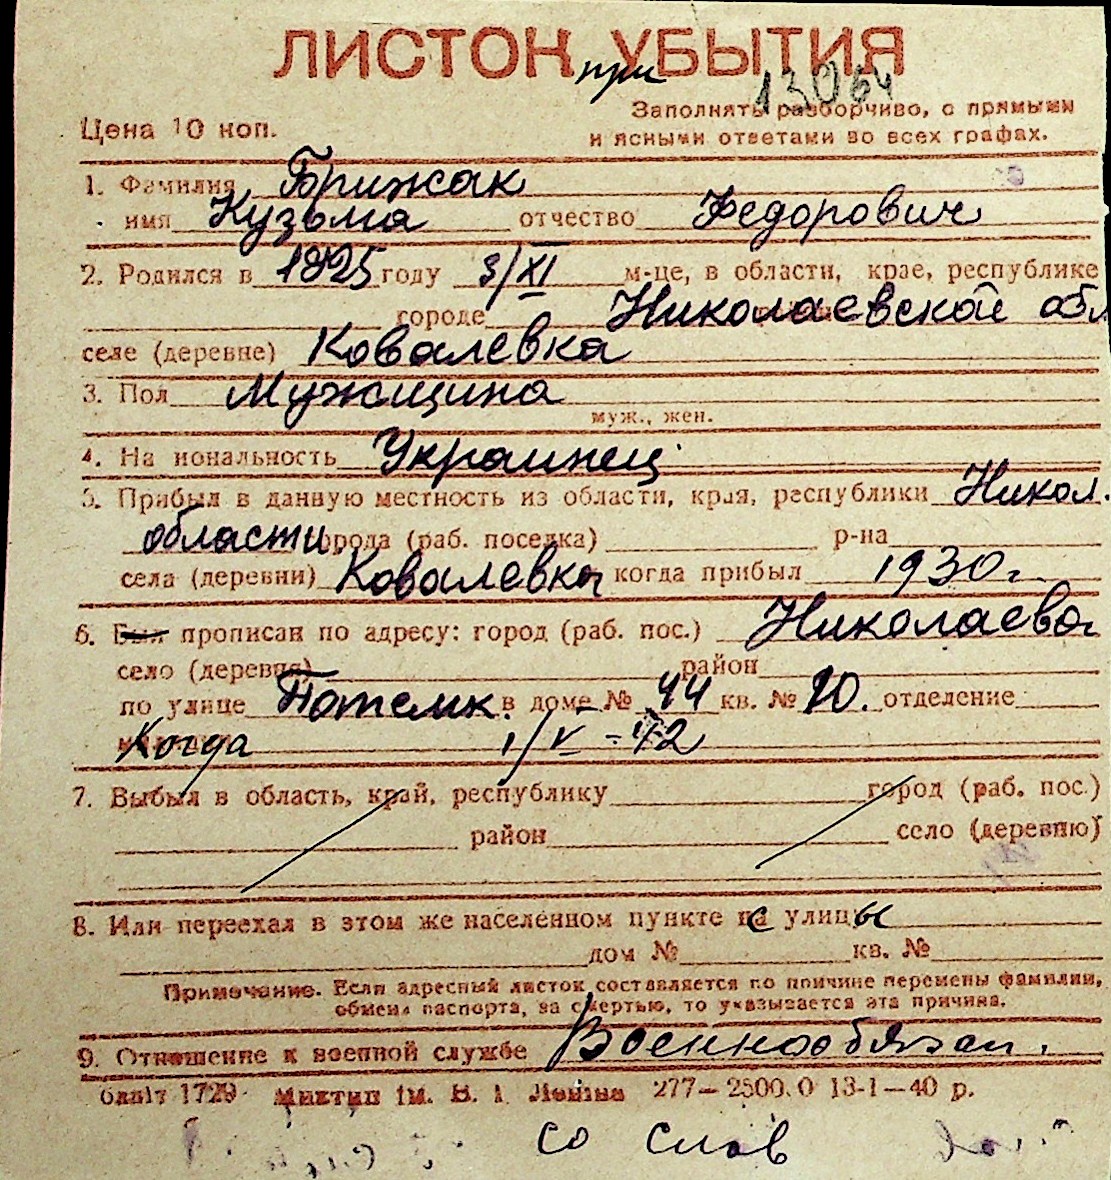 ЛИСТОК УБЫТИЯ
при
13064
Заполнять разборчиво, с прямыми
Цена 10 коп.
и ясными ответами во всех графах.
1. Фамилия Брижак
имя Кузьма отчество Федорович
2. Родился в 1925 году 3/XI м-це, в области, крае, республике
городе Николаевской обл
селе (деревне) Ковалевка
3. Пол Мужщина
муж., жен.
4. На иональность Украинец
5. Прибыл в данную местность из области, края, республики Никол.
области города (раб. поселка) р-на
села (деревни) Ковалевка когда прибыл 1930 г.
6. Был прописан по адресу: город (раб. пос.) Николаева
село (деревня) район
по улице Потемк. в доме № 44 кв. № 10. отделение
Когда 1/V - 42
7. Выбыл в область, край, республику город (раб. пос.)
район село (деревню)
8. Или переехал в этом же населенном пункте с улицы
дом № кв. №
Примечание. Если адресный листок составляется по причине перемены фамилии,
обмена паспорта, за смертью, то указывается эта причина.
9. Отношение к военной службе Военнообязан.
бліт 1729 Миктип ім. В. І. Леніна 277—2500.0 13-1—40 р.
со слов